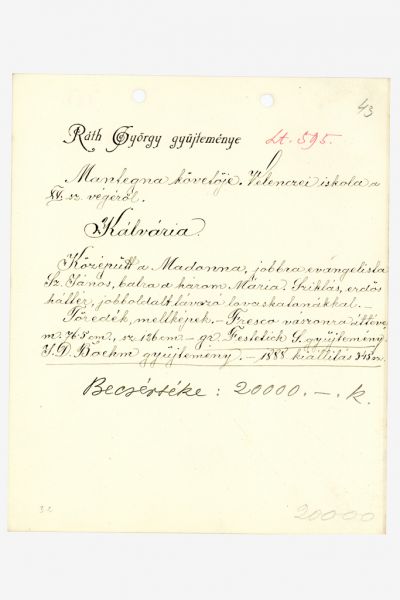 43
Ráth György gyűjteménye Lt. 595.
Mantegna követője. Velenczei iskola a
XV. sz. végéről.
Kálvária.
Középütt a Madonna, jobbra evángelista
Sz. János, balra a három Mária. Sziklás, erdős
háttér, jobboldalt távozó lovaskatonákkal. –
Töredék, mellképek. – Fresco vászonra áttéve
m. 76·5 cm, sz. 126 cm – gr. Festetich S. gyűjtemény.
J. D. Boehm gyűjtemény. – 1888 kiállítás
Becsértéke : 20000. – . k.
32
20000